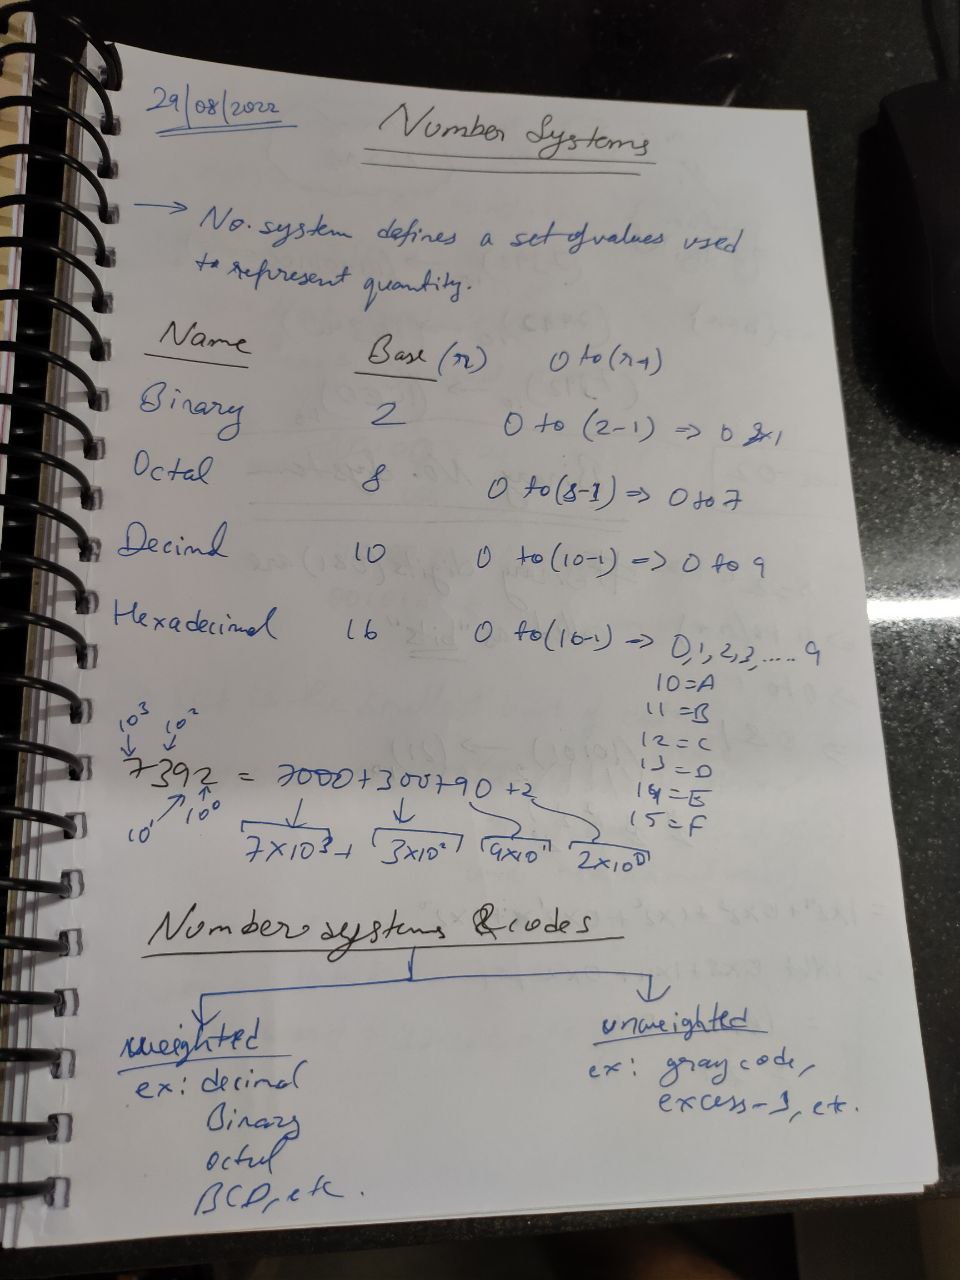 29/08/2022
Number Systems
→ No. system defines a set of values used
to represent quantity.
Name Base (r) 0 to (r-1)
Binary 2 0 to (2-1) => 0 & 1
Octal 8 0 to (8-1) => 0 to 7
Decimal 10 0 to (10-1) => 0 to 9
Hexadecimal 16 0 to (16-1) => 0,1,2,3,..... 9
10=A
11=B
12=C
13=D
14=E
15=F
10³ 10²
7392 = 7000+300+90+2
10¹ 10⁰
7×10³ + 3×10² 9×10¹ 2×10⁰
Number systems & codes
weighted
ex: decimal
Binary
octal
BCD, etc.
unweighted
ex: gray code,
excess-3, etc.